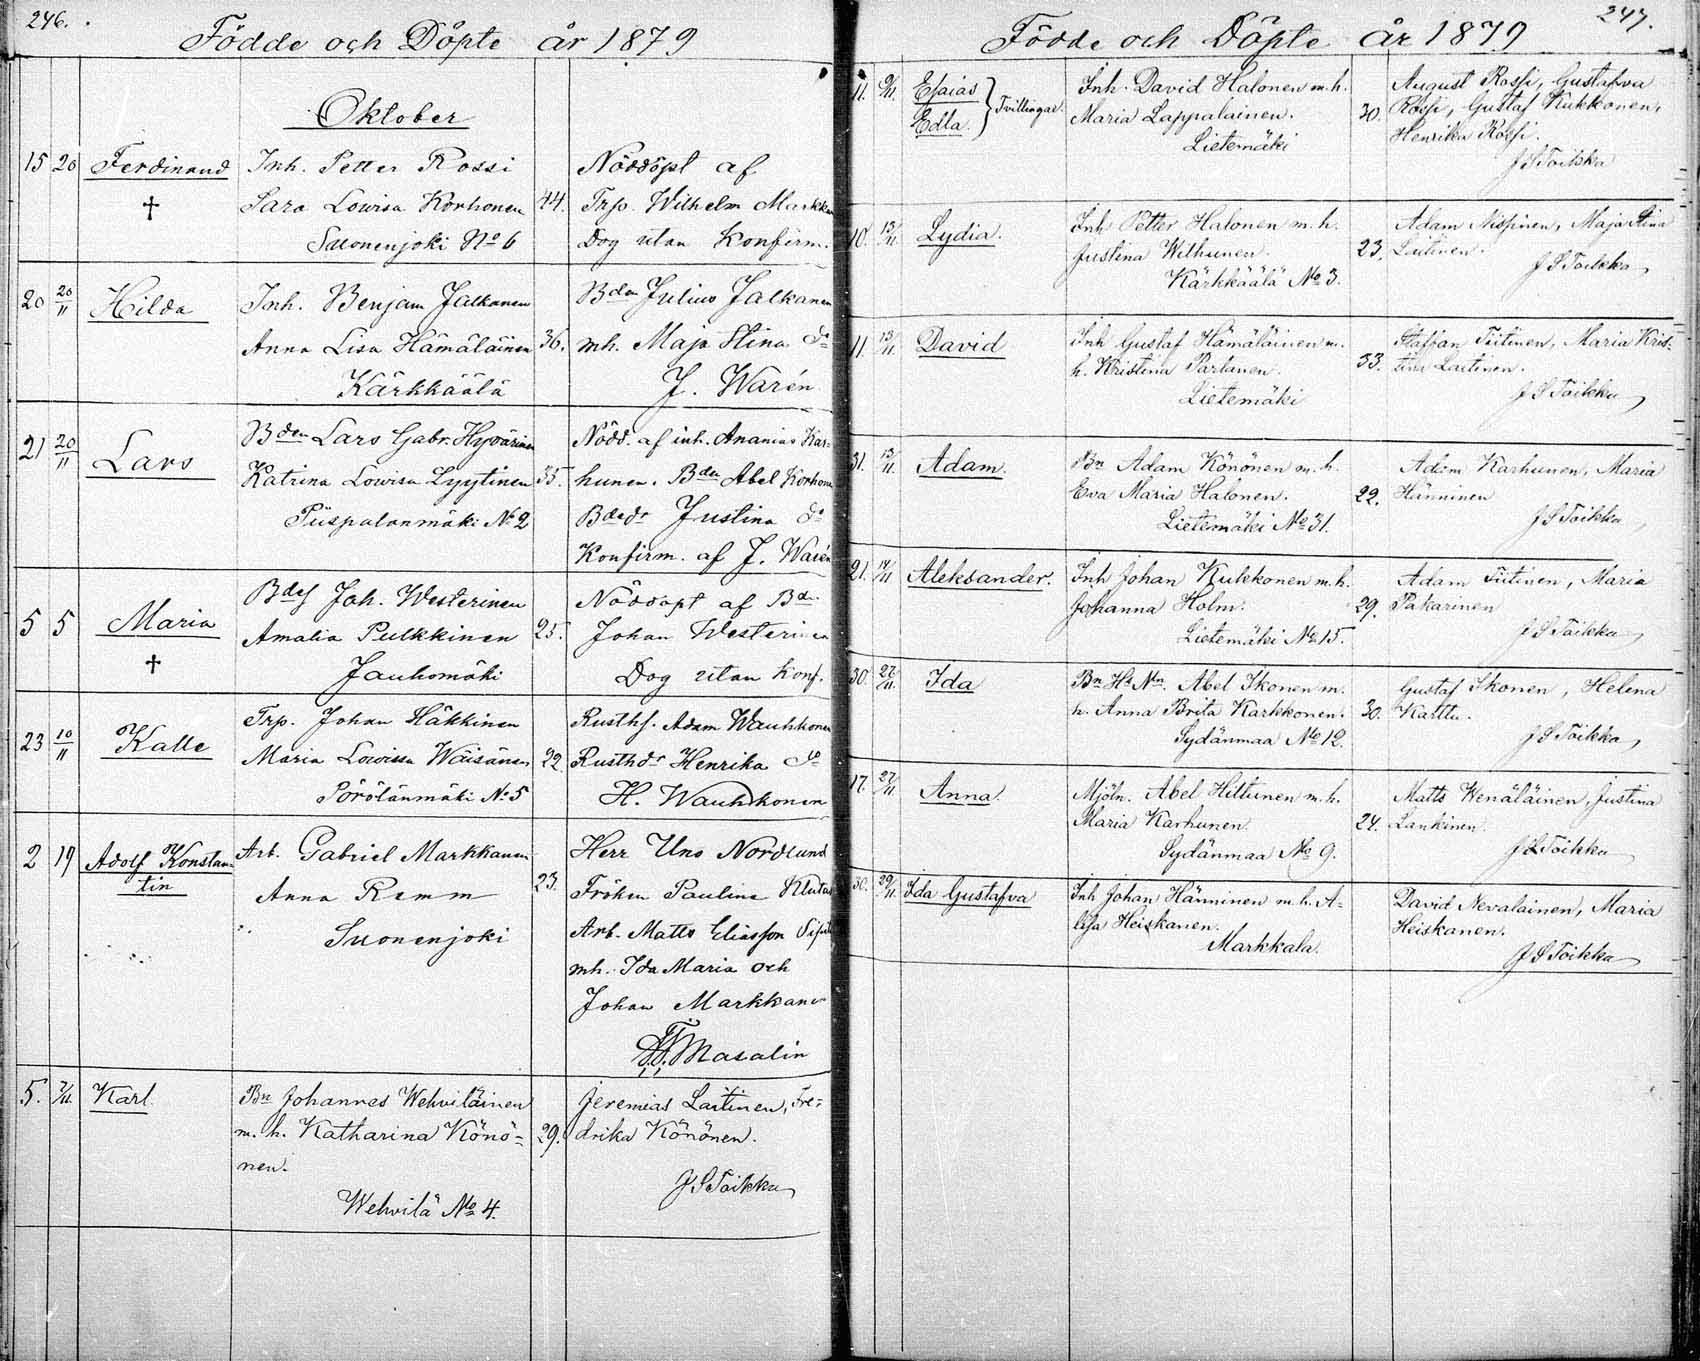 246.
Födde och Döpte år 1879
Oktober
15 20 Ferdinand Inh. Petter Rossi Nöddöpt af
† Sara Lowisa Korhonen 44. Trp. Wilhelm Markka
Suonenjoki No 6 Dog utan Konfirm.
20 20/11 Hilda Inh. Benjam Jalkanen Bdn Julius Jalkanen
Anna Lisa Hämäläinen 36. mh. Maja Stina do
Kärkkäälä J. Warén
21 20/11 Lars Bden Lars Gabr. Hyvärinen Nödd. af inh. Ananias Kar-
Katrina Lowisa Lyytinen 35. hunen. Bdn Abel Korhonen
Piispalanmäki No 2 Bdedr Justina do
Konfirm. af J. Warén
5 5 Maria Bdes Joh. Westerinen Nöddöpt af Bd.
† Amalia Pulkkinen 25. Johan Westerinen
Jauhomäki Dog utan Konf.
23 10/11 Kalle Trp. Johan Häkkinen Rusthf. Adam Wauhkonen
Maria Lowissa Wäisänen 22. Rusthdr Henrika do
Pörölänmäki No 5 H. Wauhkonen
2 19 Adolf Konstan- Arb. Gabriel Markkanen Herr Uno Nordlund
tin Anna Remm 23. Fröken Paulina Klutas
Suonenjoki Arb. Matts Eliasson
mh. Ida Maria och
Johan Markkanen
Masalin
5. 7/11. Karl Bn Johannes Wehviläinen Jeremias Laitinen, Fre-
m. h. Katharina Könö- 29. drika Könönen.
nen.
J S Toikka
Wehvilä No 4.
247.
Födde och Döpte år 1879
11. 9/11. Esaias Edla. } Tvillingar. Inh. David Halonen m. h. August Rossi, Gustafva
Maria Lappalainen. 30. Rossi, Gustaf Kukkonen,
Lietemäki Henrika Rossi.
J S Toikka
10. 13/11 Lydia. Inh Petter Halonen m. h. Adam Nissinen, Maja Stina
Justina Wilhunen. 23. Laitinen.
Kärkkäälä No 3. J S Toikka
11. 13/11. David Inh Gustaf Hämäläinen m. Staffan Tiitinen, Maria Kris-
h. Kristina Partanen. 33. tina Laitinen.
Lietemäki J S Toikka
31. 13/11. Adam. Bn Adam Könönen m. h. Adam Karhunen, Maria
Eva Maria Halonen. 22. Hänninen
Lietemäki No 31. J S Toikka
21. 14/11 Aleksander. Inh Johan Kukkonen m. h. Adam Tiitinen, Maria
Johanna Holm. 29. Pakarinen
Lietemäki No 15. J S Toikka
30. 27/11. Ida Bn Hs Nn. Abel Ikonen m. Gustaf Ikonen, Helena
h. Anna Brita Karkkonen. 30. Karttu.
Sydänmaa No 12. J S Toikka
17. 27/11. Anna. Mjöln. Abel Hiltunen m. h. Matts Wenäläinen, Justina
Maria Karhunen. 24. Lankinen.
Sydänmaa No 9. J S Toikka
30. 29/11. Ida Gustafva Inh Johan Hänninen m. h. A- David Nevalainen, Maria
lisa Heiskanen. Heiskanen.
Markkala. J S Toikka